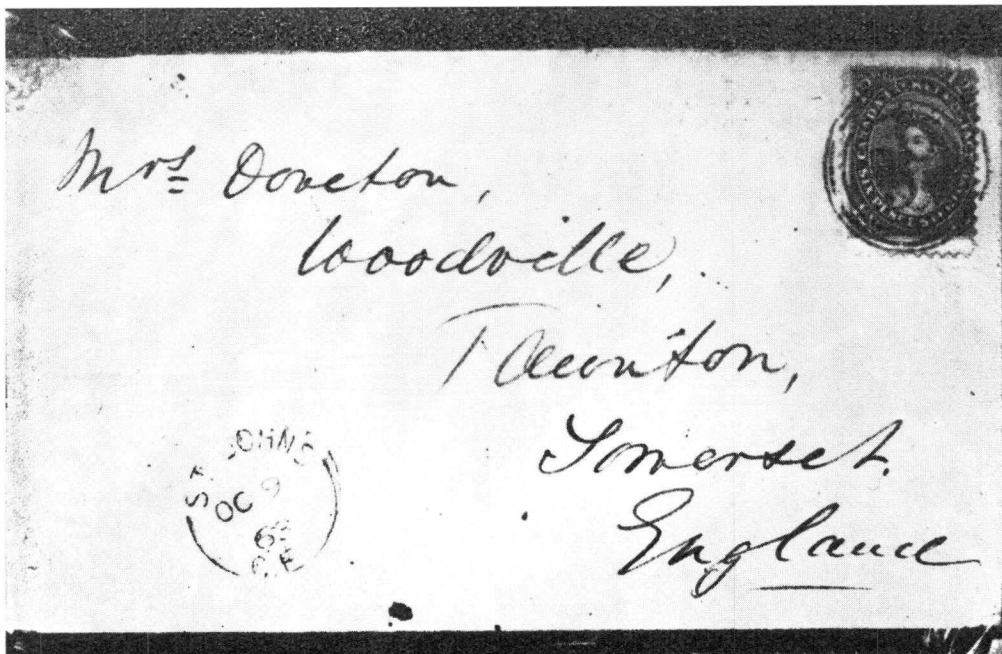 Mrs Doveton,
Woodville,
Taunton,
Somerset.
England
ST. JOHNS
OC 9
63
C.E